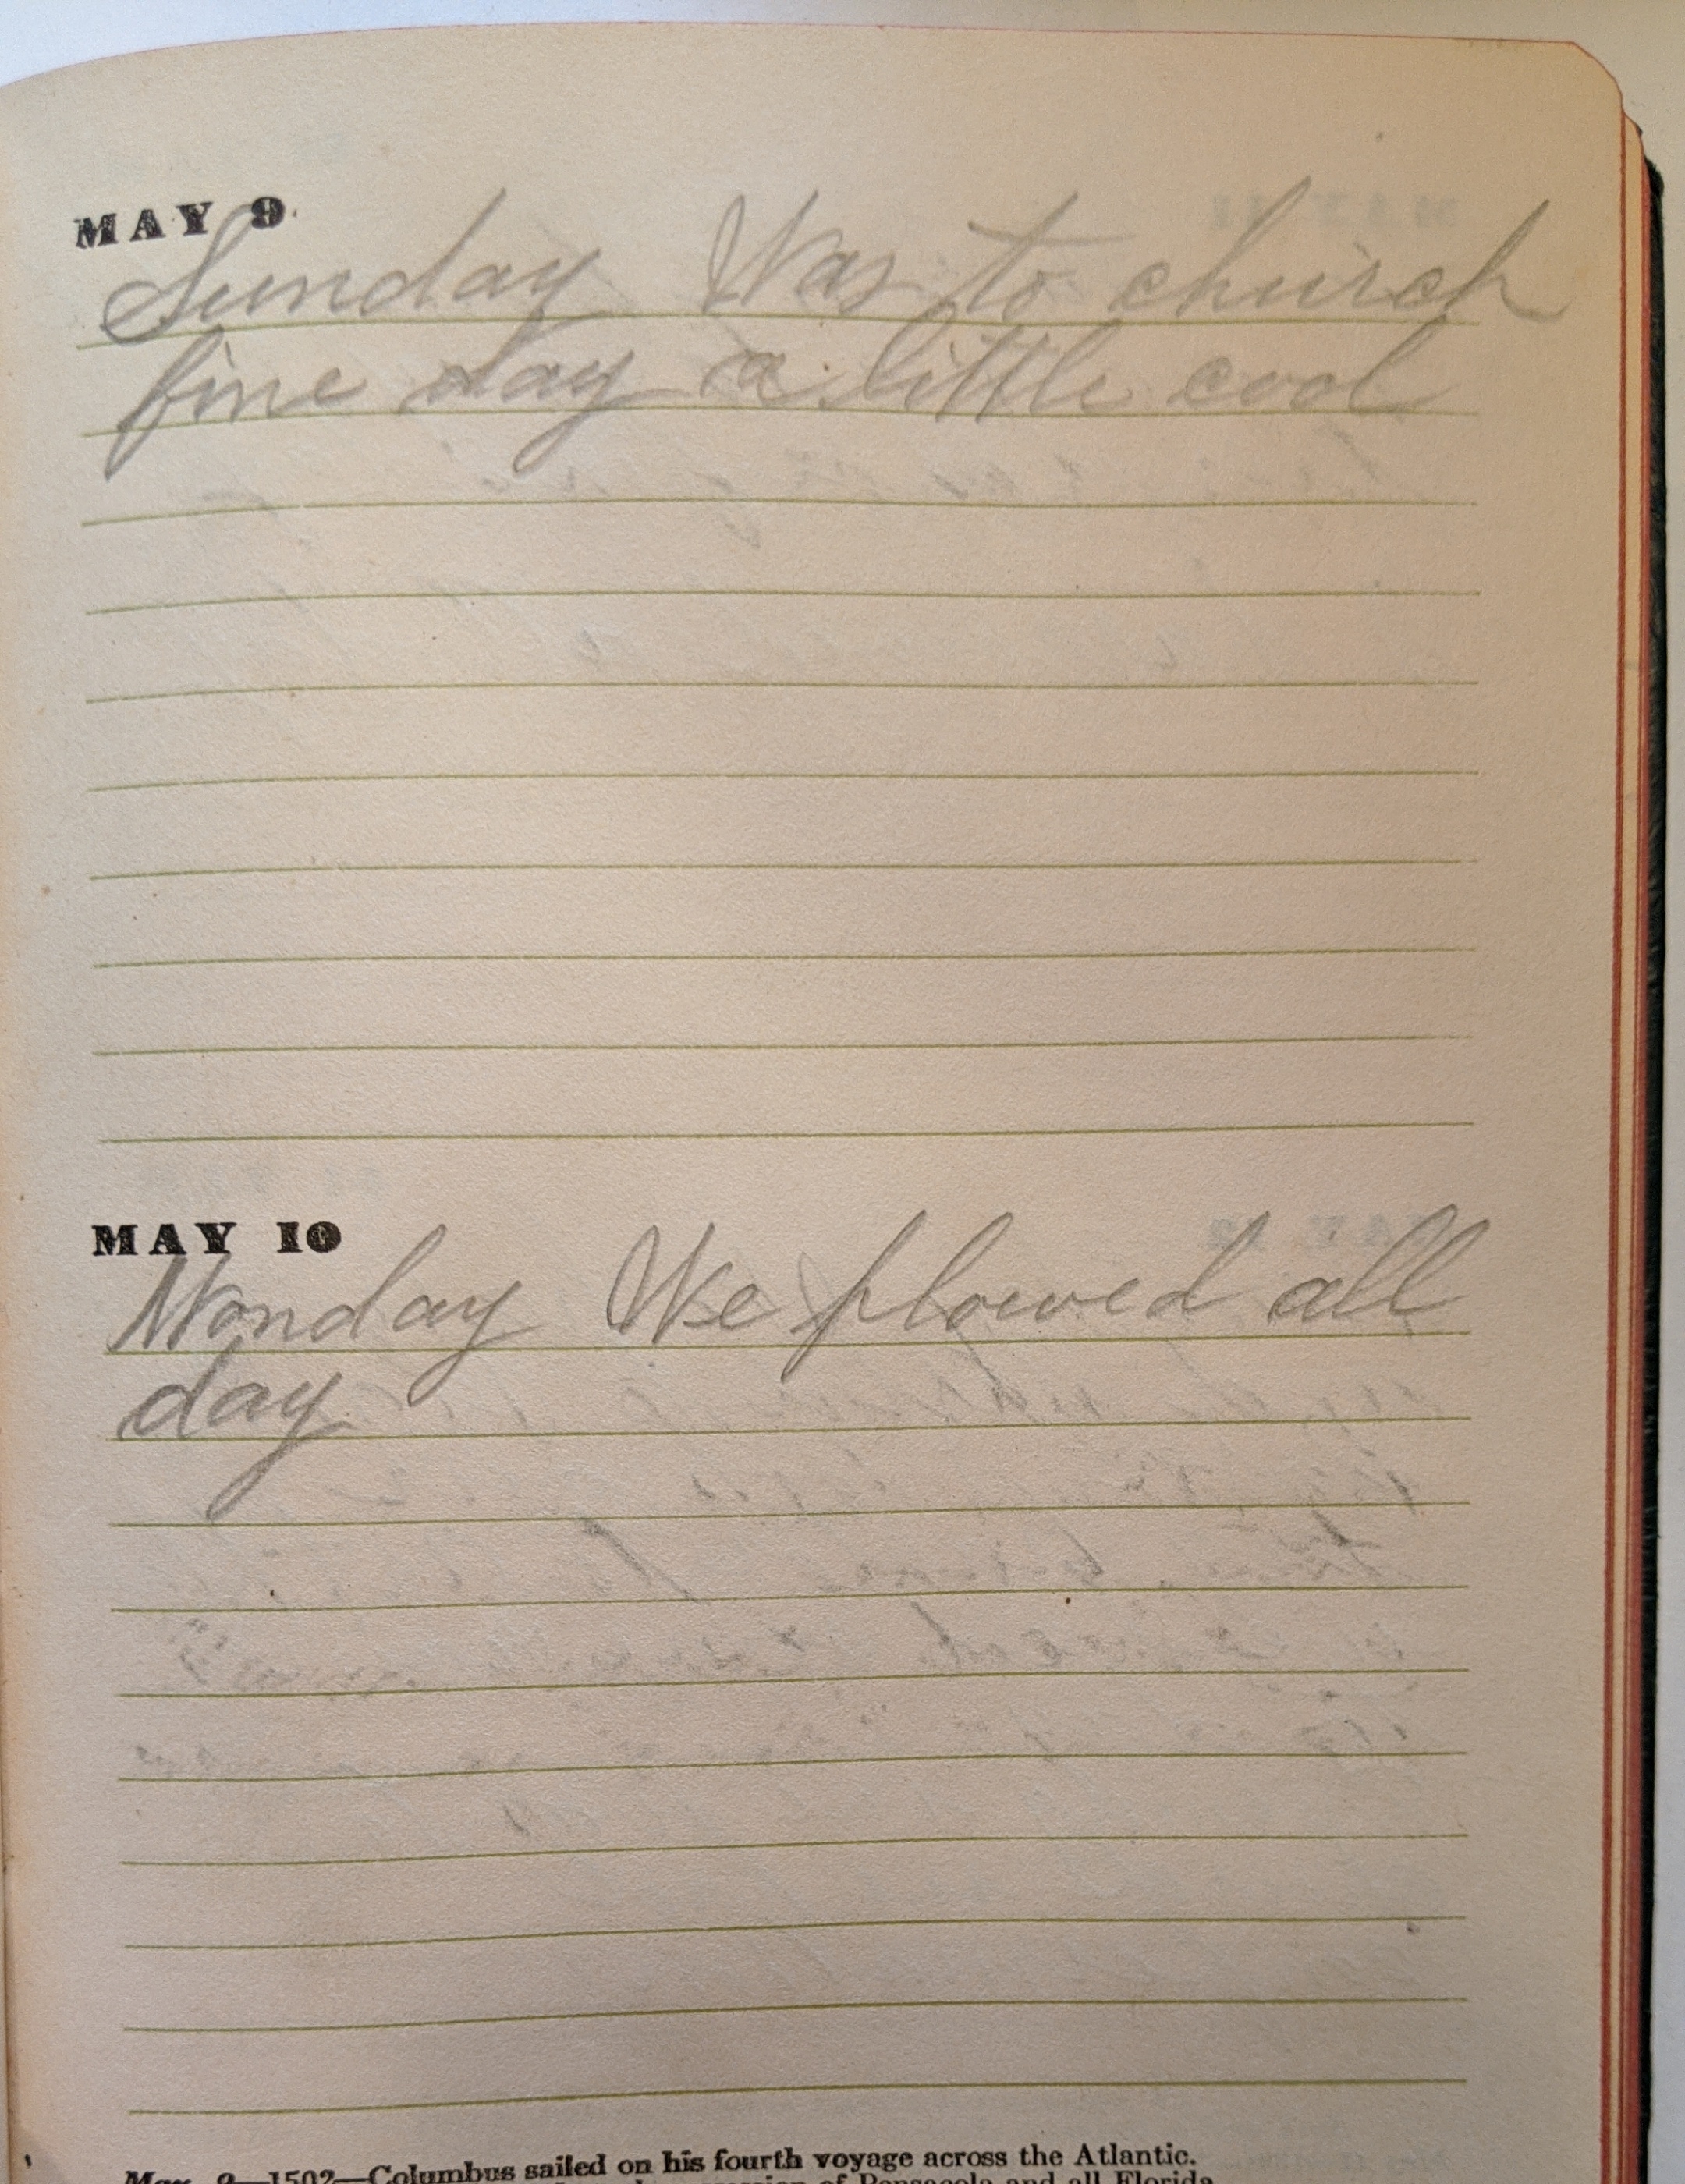 MAY 9
Sunday Was to church
fine day a little cool
MAY 10
Monday We plowed all
day
May 9—1502—Columbus sailed on his fourth voyage across the Atlantic.
of Pensacola and all Florida